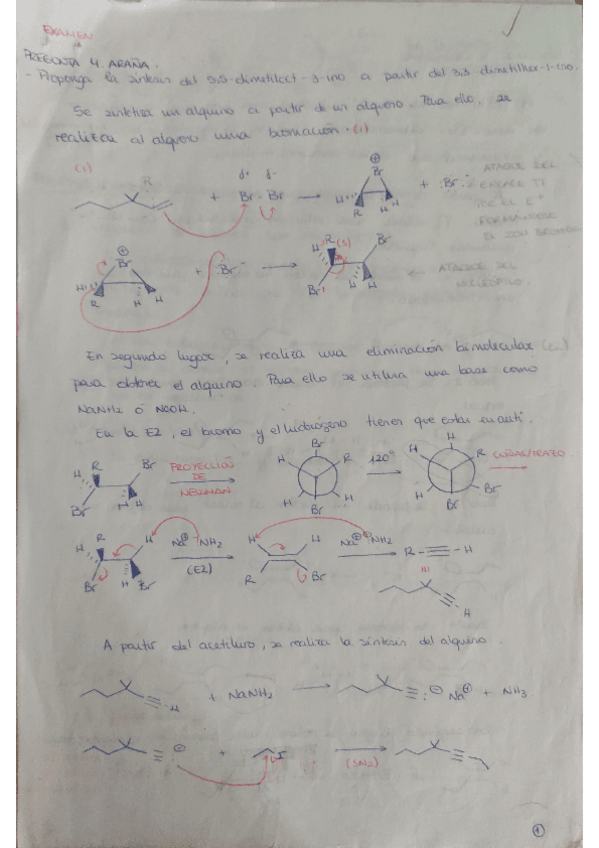 EXAMEN
PREGUNTA 4. ARAÑA.
- Proponga la síntesis del 5,5-dimetiloct-3-ino a partir del 3,3-dimetilhex-1-eno.
Se sintetiza un alquino a partir de un alqueno. Para ello, se
realiza al alqueno una bromación. (1)
(1)
R
δ+ δ-
+ Br - Br
⊕
Br
H
R
H H
+ :Br:⁻
ATAQUE DEL
ENLACE π
POR EL E⁺
FORMÁNDOSE
EL ION BROMONIO
⊕
Br
H
R
H
H
+ :Br:⁻
H R (S) Br
Br H H
← ATAQUE DEL
NUCLEÓFILO.
En segundo lugar, se realiza una eliminación bimolecular (E2)
para obtener el alquino. Para ello se utiliza una base como
NaNH2 ó
En la E2, el bromo y el hidrógeno tienen que estar en anti.
H R Br
Br H H
PROYECCIÓN
DE
NEWMAN
Br
H R
H H
Br
120°
H
H R
Br Br
H
CUÑA/TRAZO
H R H
Br H Br
Na⊕ ⊖NH2
(E2)
H H
R Br
Na⊕ ⊖NH2
R - ≡ - H
H
A partir del acetiluro, se realiza la síntesis del alquino.
H + NaNH2
:⊖ Na⊕ + NH3
:⊖ + I
(SN2)
1